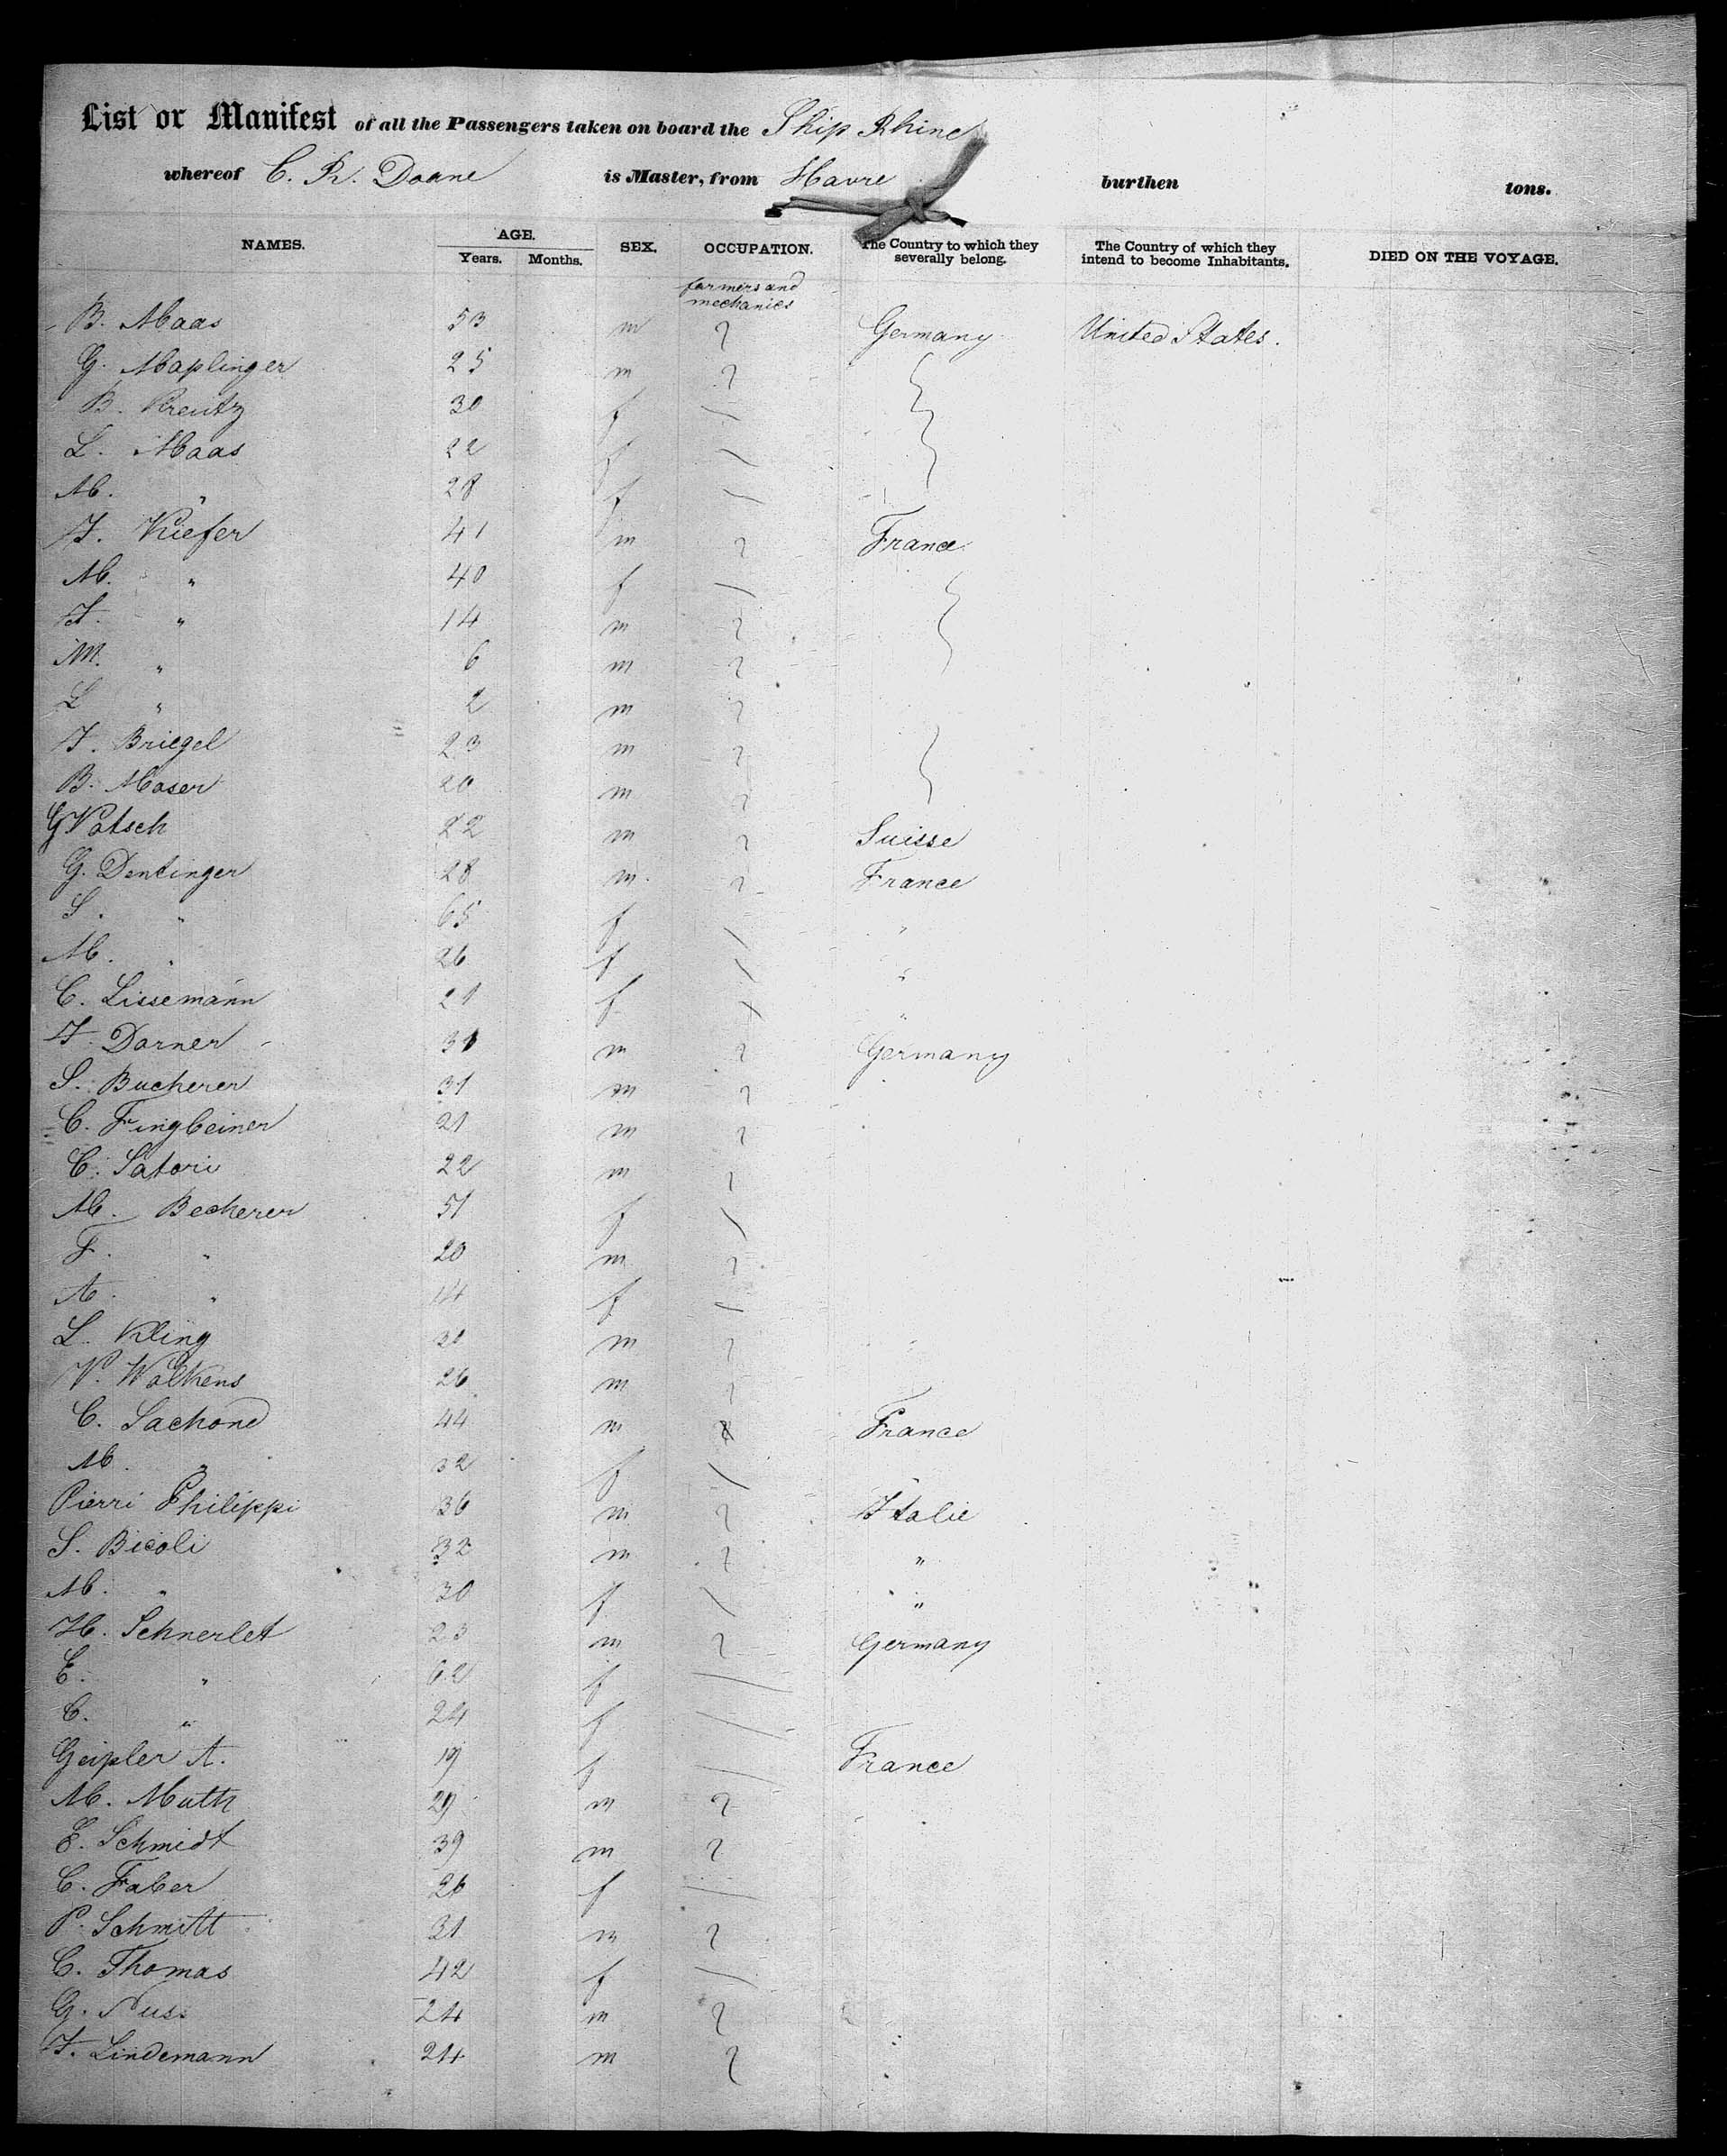 List or Manifest of all the Passengers taken on board the Ship Rhine
whereof C. R. Doane is Master, from Havre burthen tons.
NAMES. AGE. Years. Months. SEX. OCCUPATION. The Country to which they severally belong. The Country of which they intend to become Inhabitants. DIED ON THE VOYAGE.
farmers and
mechanics
B. Maas 53 m Germany United States.
G. Maplinger 25 m
B. Kreutz 30 f
L. Maas 22 f
M. " 28 f
J. Kiefer 41 m France
M. " 40 f
J. " 14 m
M. " 6 m
L " 2 m
J. Briegel 23 m
B. Moser 20 m
G Votsch 22 m Suisse
G. Dentinger 28 m. France
S. " 65 f "
M. " 26 f "
C. Lissemann 21 f "
J. Dorner 31 m Germany
S. Bucherer 31 m
C. Fingbeiner 21 m
C. Satori 22 m
M. Becherer 51 f
F. " 20 m
A. " 14 f
L. Kling m
V. Walkens 26 m
C. Sachond 44 m France
M. " 32 f "
Pierri Philippi 36 m Italie
S. Bicoli 32 m "
M. " 30 f "
H. Schnerlet 23 m Germany
E. " 62 f
C. " 24 f
Geipler A. 19 f France
M. Muth 29 m
E. Schmidt 39 m
C. Faber 26 f
P. Schmitt 31 m
C. Thomas 42 f
G. Nuss 24 m
J. Lindemann 24 m